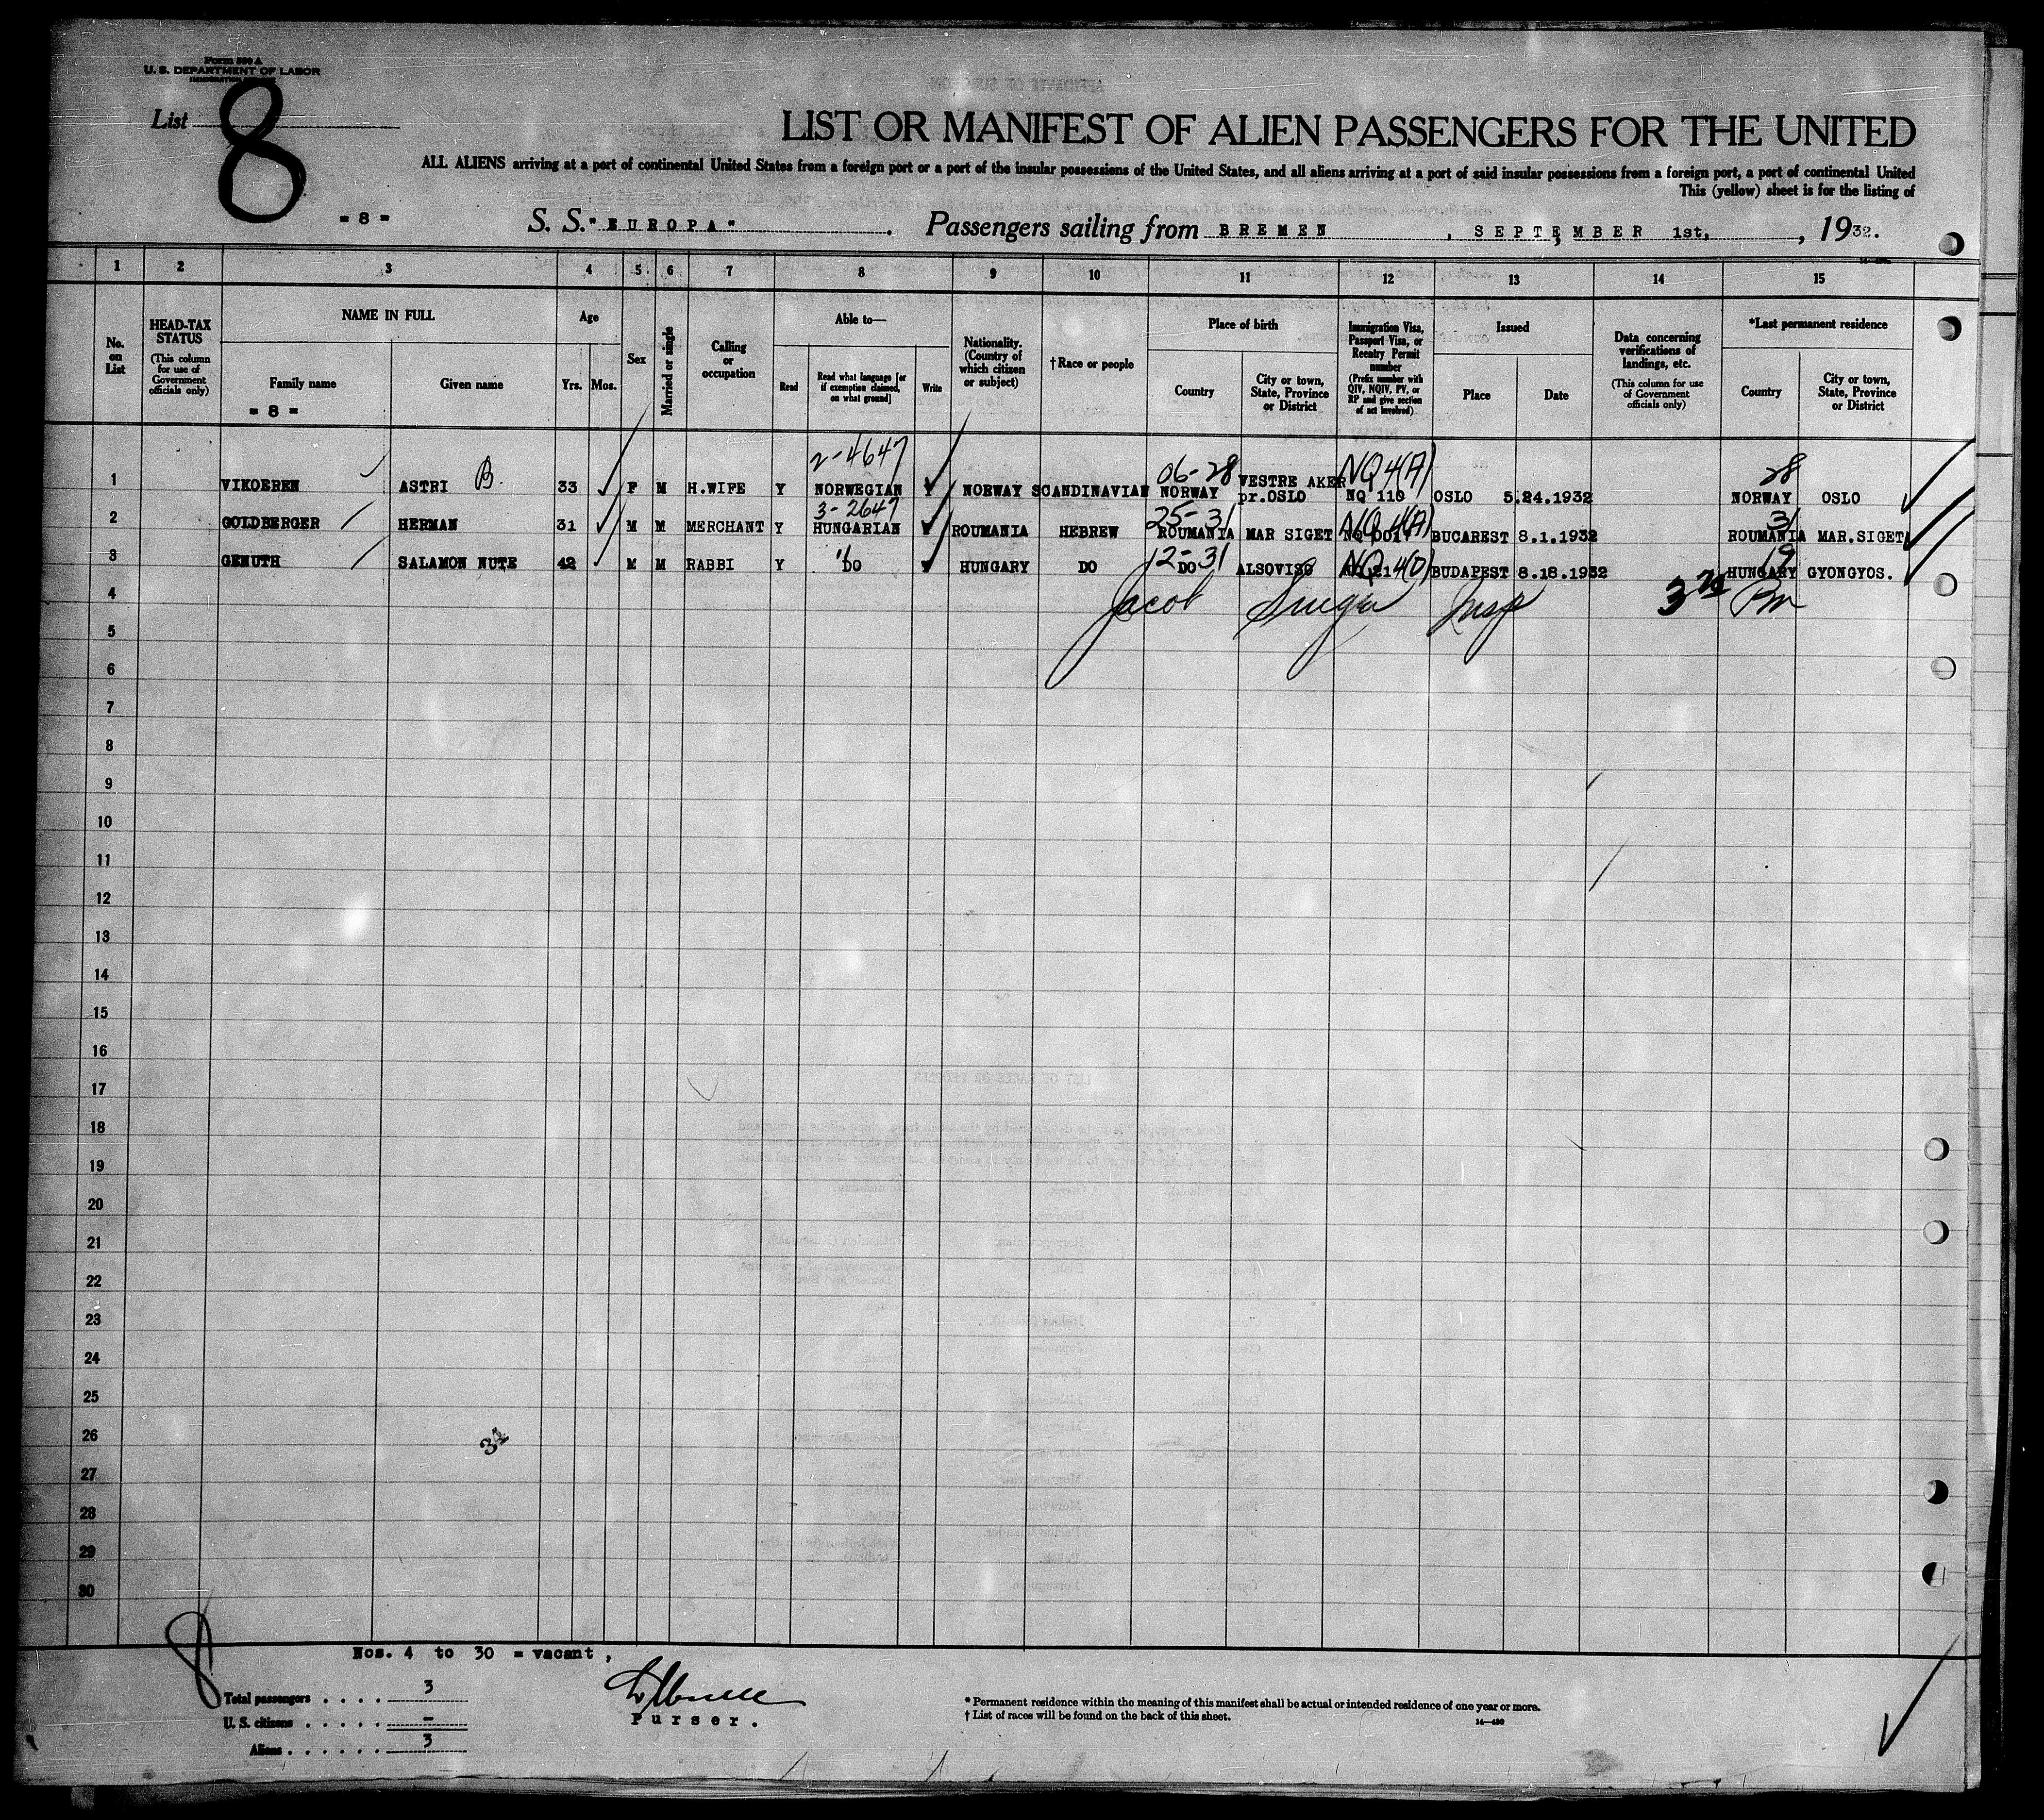 Form 500 A
U. S. DEPARTMENT OF LABOR
List 8
LIST OR MANIFEST OF ALIEN PASSENGERS FOR THE UNITED
ALL ALIENS arriving at a port of continental United States from a foreign port or a port of the insular possessions of the United States, and all aliens arriving at a port of said insular possessions from a foreign port, a port of continental United
This (yellow) sheet is for the listing of
= 8 = S. S. "EUROPA" . Passengers sailing from BREMEN , SEPTEMBER 1st, , 1932.
1 2 3 4 5 6 7 8 9 10 11 12 13 14 15
No. on List
HEAD-TAX STATUS (This column for use of Government officials only)
NAME IN FULL
Family name
= 8 =
Given name
Age
Yrs. Mos.
Sex
Married or single
Calling or occupation
Able to—
Read
Read what language [or if exemption claimed, on what ground]
Write
Nationality. (Country of which citizen or subject)
† Race or people
Place of birth
Country
City or town, State, Province or District
Immigration Visa, Passport Visa, or Reentry Permit number (Prefix number with QIV, NQIV, PV, or RP and give section of act involved)
Issued
Place
Date
Data concerning verifications of landings, etc. (This column for use of Government officials only)
*Last permanent residence
Country
City or town, State, Province or District
2-4647 06-28 NQ 4(A) 28
1 VIKOEREN ASTRI B. 33 F M H.WIFE Y NORWEGIAN Y NORWAY SCANDINAVIAN NORWAY VESTRE AKER pr.OSLO NQ 110 OSLO 5.24.1932 NORWAY OSLO
3-2647 25-31 NQ 4(A) 31
2 GOLDBERGER HERMAN 31 M M MERCHANT Y HUNGARIAN Y ROUMANIA HEBREW ROUMANIA MAR SIGET BUCAREST 8.1.1932 ROUMANIA MAR.SIGET
12-31 NQ 4(D) 19
3 GENUTH SALAMON NUTE 42 M M RABBI Y DO Y HUNGARY DO DO ALSOVISO BUDAPEST 8.18.1932 HUNGARY GYONGYOS.
4 Jacob Insp
5
6
7
8
9
10
11
12
13
14
15
16
17
18
19
20
21
22
23
24
25
26
34
27
28
29
30
8
Nos. 4 to 30 = vacant ,
Total passengers . . . . 3
U. S. citizens . . . . . —
Aliens . . . . . . 3
Purser.
* Permanent residence within the meaning of this manifest shall be actual or intended residence of one year or more.
† List of races will be found on the back of this sheet.
14—490